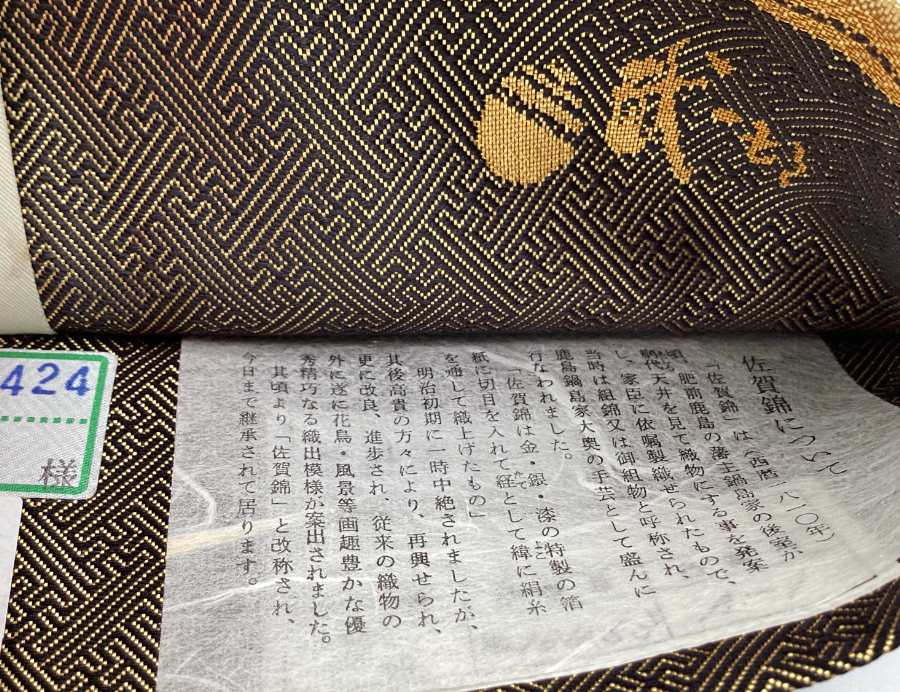 佐賀錦について
「佐賀錦」は（西暦一八一〇年）
頃、肥前鹿島の藩主鍋島家の後室が
網代天井を見て織物にする事を発案
し、家臣に依嘱製織せられたもので、
当時は組錦又は御組物と呼称され、
鹿島鍋島家大奥の手芸として盛んに
行なわれました。
「佐賀錦は金・銀・漆の特製の箔
紙に切目を入れて経として緯に絹糸
を通して織上げたもの」
明治初期に一時中絶されましたが、
其後高貴の方々により、再興せられ、
更に改良、進歩され、従来の織物の
外に遂に花鳥・風景等画趣豊かな優
秀精巧なる織出模様が案出されました。
其頃より「佐賀錦」と改称され、
今日まで継承されて居ります。
424
様